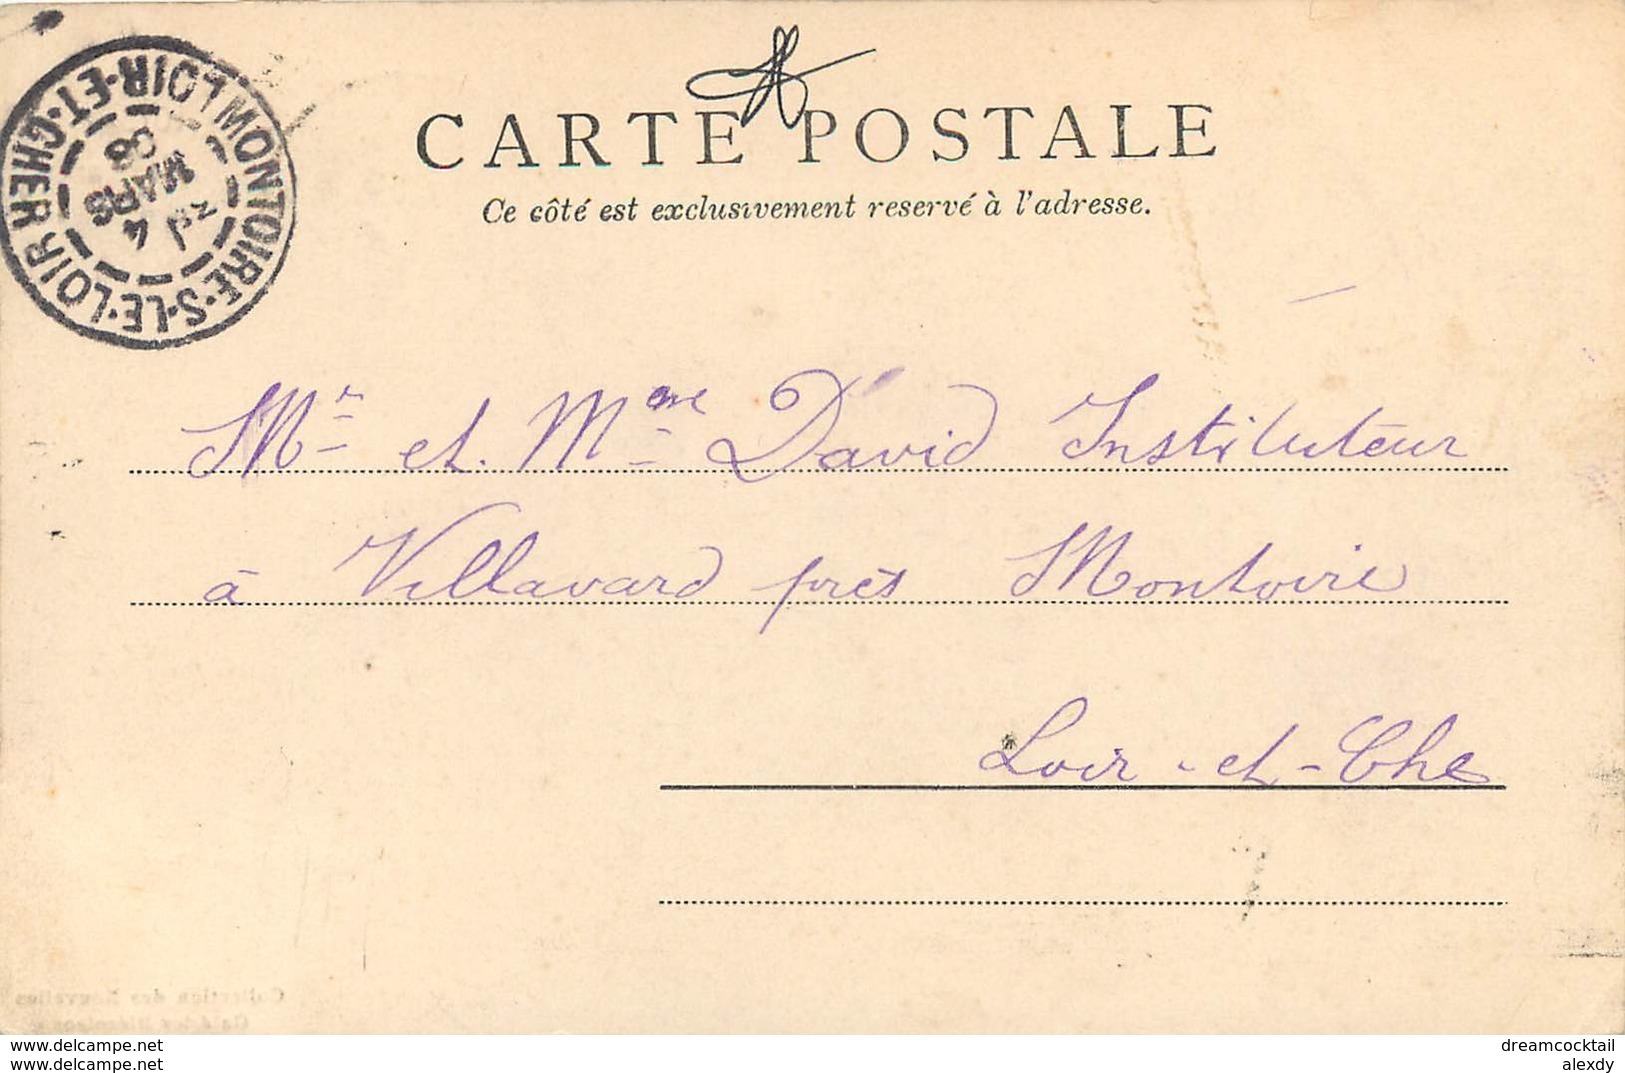 MONTOIRE-S-LE-LOIR
LOIR-ET-CHER
4
MARS
CARTE POSTALE
Ce côté est exclusivement reservé à l'adresse.
Mr et Mme David Instituteur
à Villavard près Montoire
Loir-et-Che
Collection des Nouvelles
www.delcampe.net
www.delcampe.net
dreamcocktail
alexdy